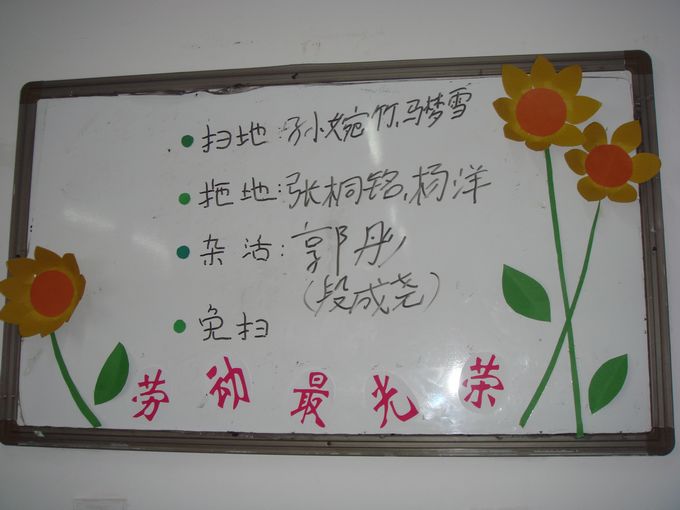 扫地:孙婉竹、马梦雪
拖地:张桐铭、杨洋
杂活:郭彤
(段成尧)
免扫
劳动最光荣